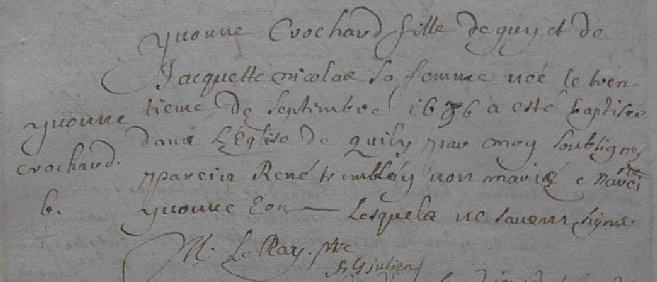 yvonne Crochard fille de guy et de
Jacquette nicolas sa femme neé le tren
yvonne
tieme de septembre 1676 a esté baptisee
dans L'Eglise de quily par moy soubsigne
crochard.
parein René tremblay non marié e
b.
yvonne Eon — Lesquels ne savent signe
M. Le Ray. pbre